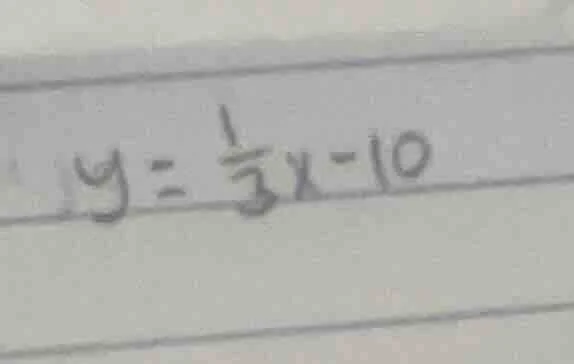 y = 1/3 x - 10